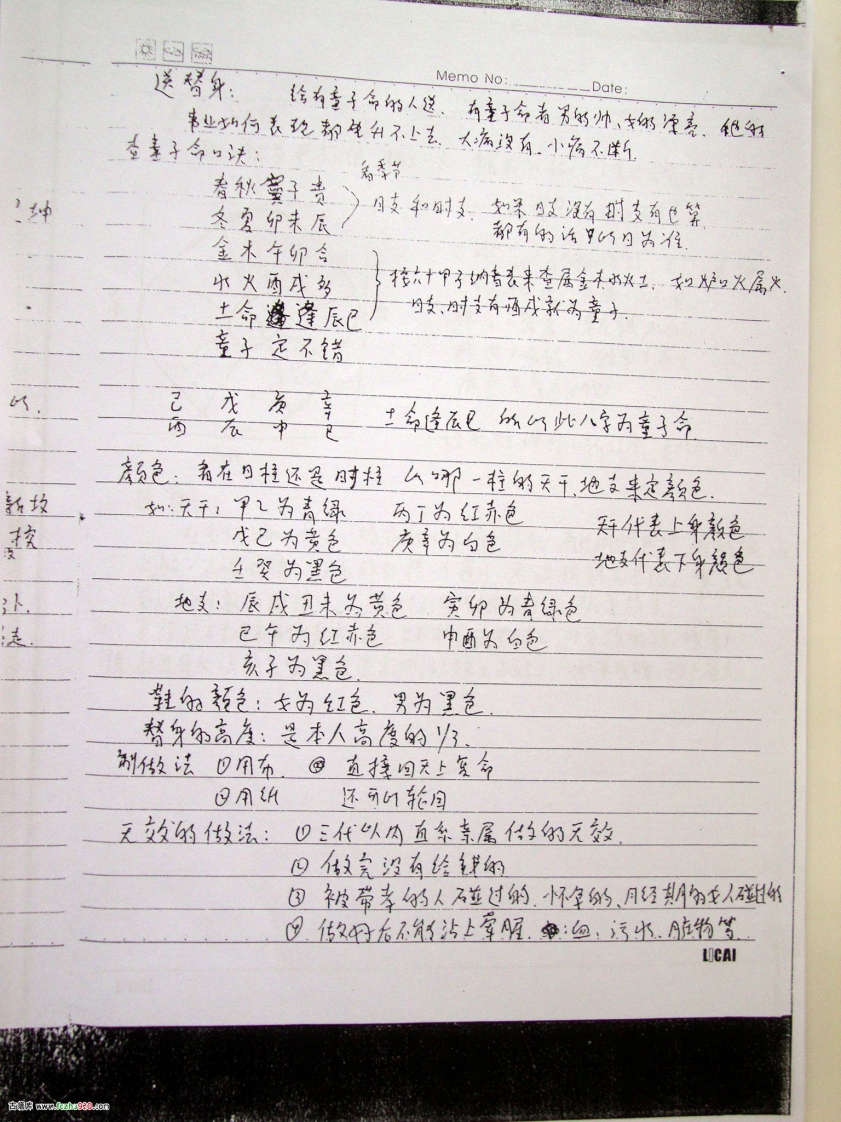 Memo No: Date:
送替身: 给有童子命的人送. 有童子命者男的帅、女的漂亮. 他的
事业如何表现都是升不上去. 大病没有、小病不断.
查童子命口诀:
看季节
春秋寅子贵 日支和时支. 如果日支没有时支有也算.
冬夏卯未辰 都有的话以日为准.
金木午卯合
水火酉戌多 按六十甲子纳音表来查属金木水火土. 如炉中火属火.
土命逢辰巳 日支、时支有酉戌就为童子.
童子定不错
己 戊 庚 辛
酉 辰 申 巳 土命逢辰巳 所以此八字为童子命
颜色: 看在日柱还是时柱 以哪一柱的天干、地支来定颜色.
如: 天干: 甲乙为青绿 丙丁为红赤色 天干代表上身颜色
戊己为黄色 庚辛为白色 地支代表下身颜色
壬癸为黑色
地支: 辰戌丑未为黄色 寅卯为青绿色
巳午为红赤色 申酉为白色
亥子为黑色.
鞋的颜色: 女为红色. 男为黑色.
替身的高度: 是本人高度的1/3.
制做法 ①用布. 直接回天上复命
②用纸 还可以轮回
无效的做法: ①三代以内直系亲属做的无效.
② 做完没有给钱的
③ 被带孝的人碰过的、怀孕的、月经期的女人碰过的
④. 做好后不能沾上荤腥. :血、污水、脏物等.
LICAI
古籍库 www.fozhu920.com